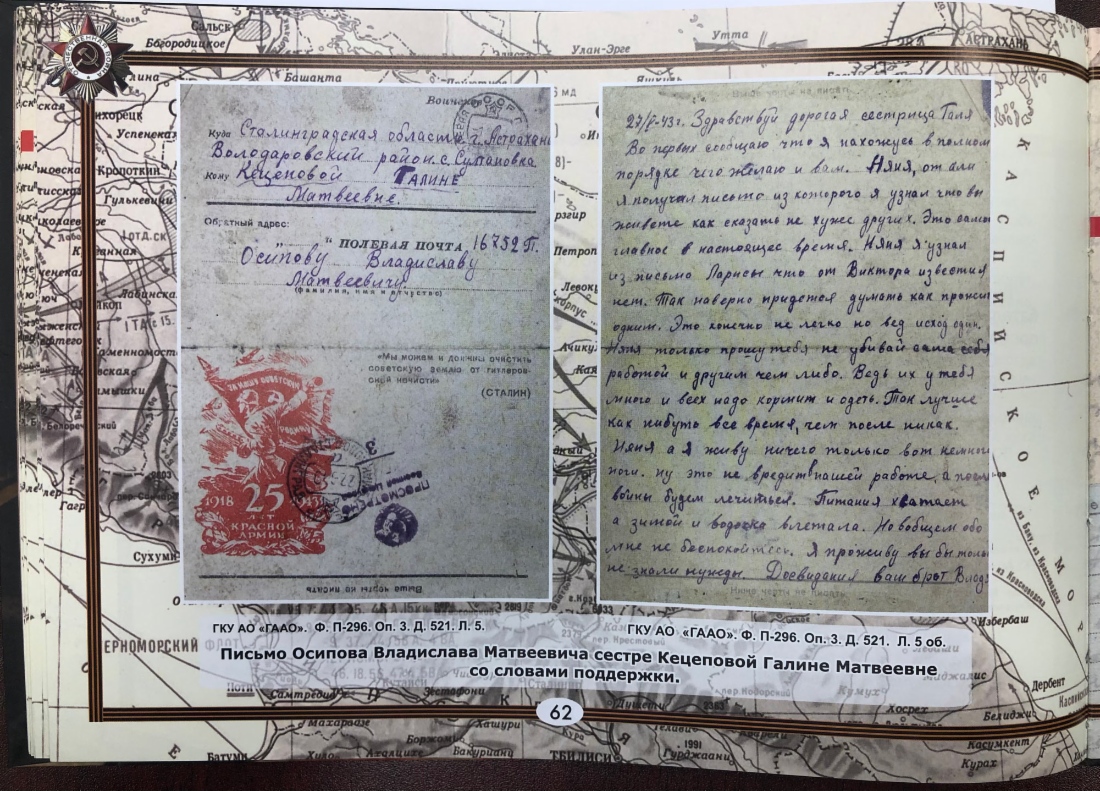 Сальск
Богородицкое
Башанта
Улан-Эрге
Утта
АСТРАХАНЬ
Яшкуль
Успенская
Кропоткин
Гулькевичи
ОТД.СК
Лабинска
Сухуми
ЕРНОМОРСКИЙ ФЛОТ
Поти
Самтредиа
Зестафони
Махарадзе
Боржоми
Хашури
Бакуриани
Ахалцихе
Батуми
Гори
Душети
ТБИЛИСИ
Гурджаани
1991
2383
Телави
Дербент
Белиджи
Касумкент
Хосрех
Курах
Избербаш
Маджалис
Кумух
КАСПИЙСКОЕ
МОР
Воинское
Куда Сталинградская область г. Астрахань
Володаровский район с. Султановка
Кому Кецеповой Галине
Матвеевне.
Обратный адрес:
„ " ПОЛЕВАЯ ПОЧТА, 16752 П.
Осипову Владиславу
Матвеевичу.
(фамилия, имя и отчество)
«Мы можем и должны очистить
советскую землю от гитлеров-
ской нечисти»
(СТАЛИН)
ЗА НАШУ СОВЕТСКУЮ
РОДИНУ
1918 25
ЛЕТ
КРАСНОЙ
АРМИИ
ПРОСМОТРЕНО
Военной Цензурой
Выше черты не писать
27/V-43г. Здравствуй дорогая сестрица Галя
Во первых сообщаю что я нахожусь в полном
порядке чего желаю и вам. Няня, от али
я получил письмо из которого я узнал что вы
живете как сказать не хуже других. Это само
главное в настоящее время. Няня я узнал
из письма Ларисы что от Виктора известий
нет. Так наверно придется думать как прожит
одним. Это конечно не легко но вед исход один.
Няня только прошу тебя не убивай сама себя
работой и другим чем либо. Ведь их у тебя
много и всех надо кормит и одеть. Так лучше
как нибуть все время, чем после никак.
Няня а я живу ничего только вот немного
ноги. ну это не вредит нашей работе, а после
войны будем лечиться. Питания хватает
а зимой и водочка влетала. Но вобщем обо
мне не беспокойтесь. Я проживу вы бы только
не знали нужды. Досвидания ваш брат Влад
Ниже черты не писать
ГКУ АО «ГААО». Ф. П-296. Оп. 3. Д. 521. Л. 5.
ГКУ АО «ГААО». Ф. П-296. Оп. 3. Д. 521. Л. 5 об.
Письмо Осипова Владислава Матвеевича сестре Кецеповой Галине Матвеевне
со словами поддержки.
62